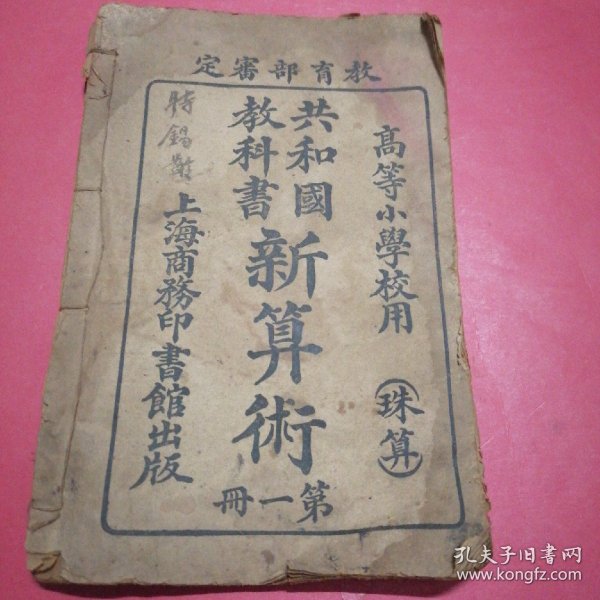 教育部審定
高等小學校用
(珠算)
共和國
教科書
新算術
第一冊
上海商務印書館出版
孔夫子旧书网
www.kongfz.com